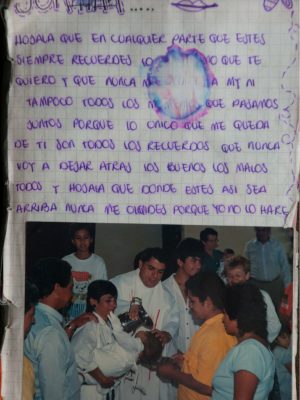 HOJALA QUE EN CUALQUIER PARTE QUE ESTES
SIEMPRE RECUERDES LO NO QUE TE
QUIERO Y QUE NUNCA A MY NI
TAMPOCO TODOS LOS QUE PASAMOS
JUNTOS PORQUE LO UNICO QUE ME QUEDA
DE TI SON TODOS LOS RECUERDOS QUE NUNCA
VOY A DEJAR ATRAS LOS BUENOS LOS MALOS
TODOS Y HOJALA QUE DONDE ESTES ASI SEA
ARRIBA NUNCA ME OLVIDES PORQUE YO NO LO HARE